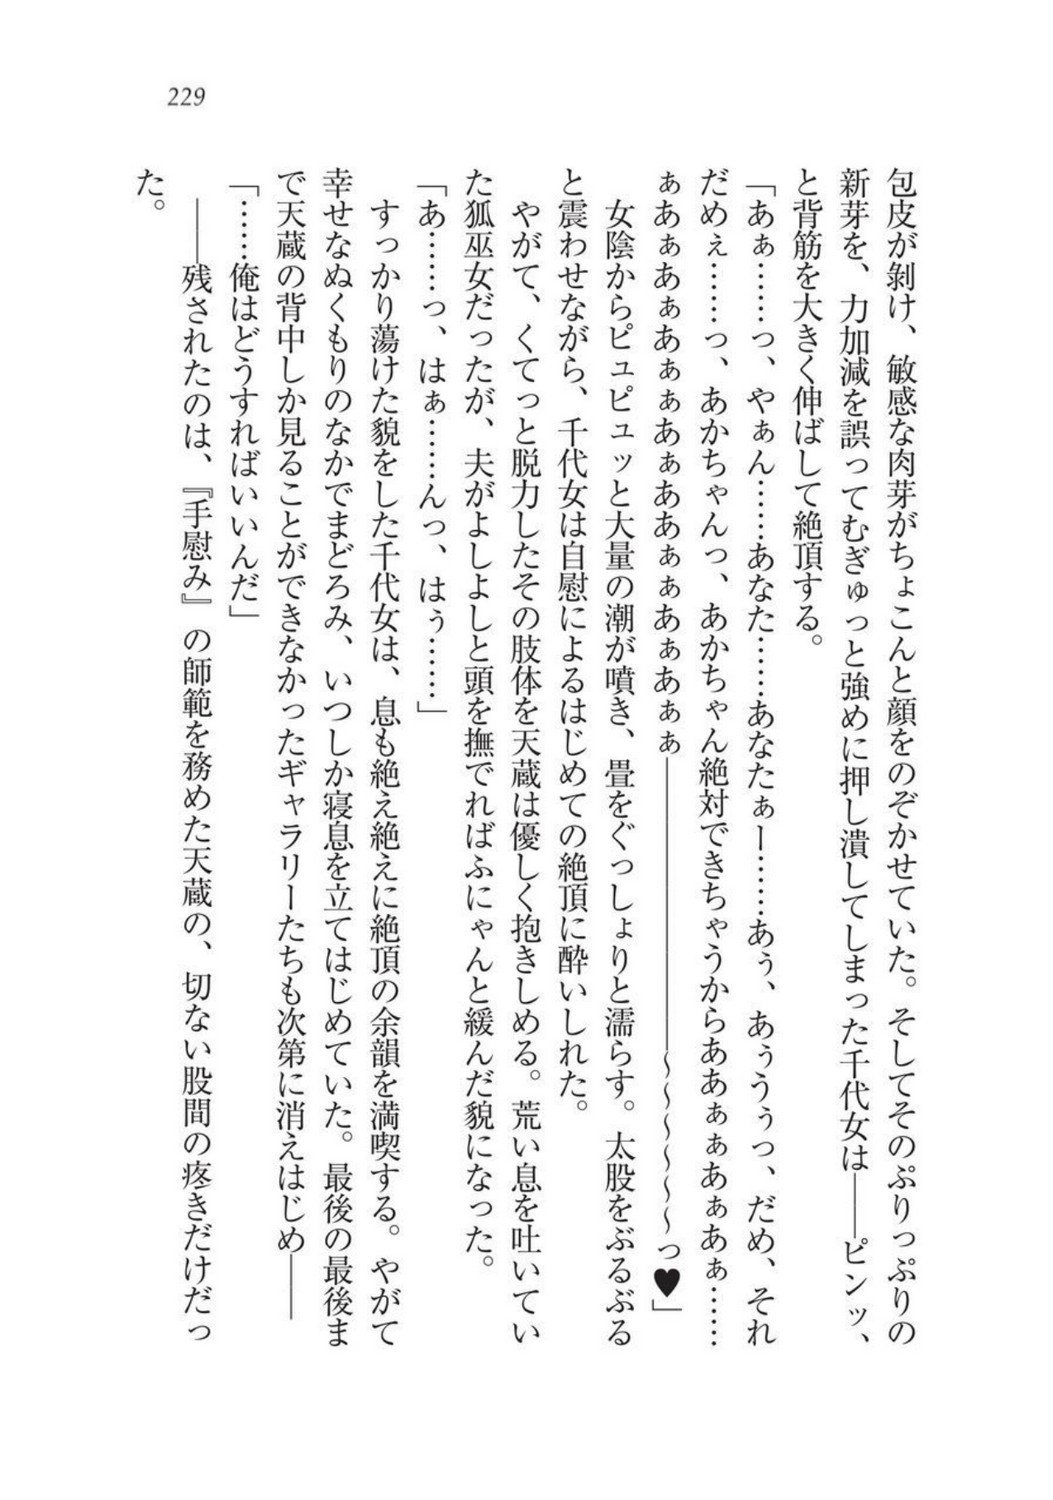 229
包皮が剥け、敏感な肉芽がちょこんと顔をのぞかせていた。そしてそのぷりっぷりの
新芽を、力加減を誤ってむぎゅっと強めに押し潰してしまった千代女は――ピンッ、
と背筋を大きく伸ばして絶頂する。
「あぁ……っ、やぁん……あなた……あなたぁー……あぅ、あぅうぅっ、だめ、それ
だめぇ……っ、あかちゃんっ、あかちゃん絶対できちゃうからああぁぁあぁあぁ……
ぁあぁあぁあぁぁあぁああぁぁあぁあぁぁ――――――――――～～～～～～っ♥」
女陰からピュピュッと大量の潮が噴き、畳をぐっしょりと濡らす。太股をぶるぶる
と震わせながら、千代女は自慰によるはじめての絶頂に酔いしれた。
やがて、くてっと脱力したその肢体を天蔵は優しく抱きしめる。荒い息を吐いてい
た狐巫女だったが、夫がよしよしと頭を撫でればふにゃんと緩んだ貌になった。
「あ……っ、はぁ……んっ、はぅ……」
すっかり蕩けた貌をした千代女は、息も絶え絶えに絶頂の余韻を満喫する。やがて
幸せなぬくもりのなかでまどろみ、いつしか寝息を立てはじめていた。最後の最後ま
で天蔵の背中しか見ることができなかったギャラリーたちも次第に消えはじめ――
「……俺はどうすればいいんだ」
――残されたのは、『手慰み』の師範を務めた天蔵の、切ない股間の疼きだけだっ
た。